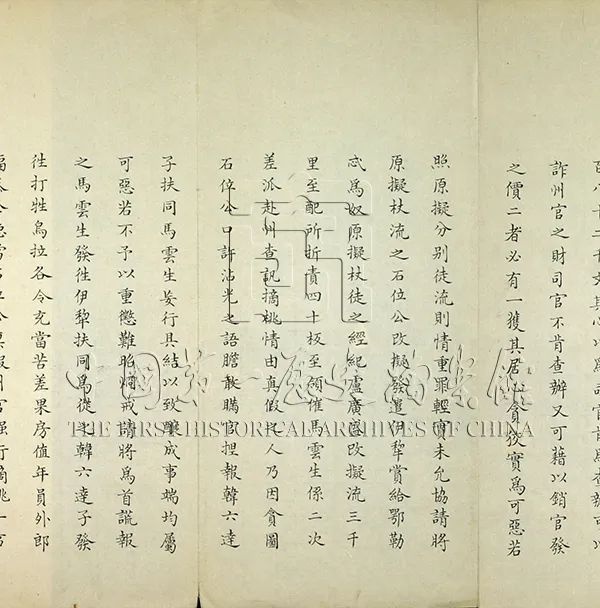 詐州官之財司官不肯查辦又可藉以銷官發
之價二者必有一獲其居心貪狡實爲可惡若
照原擬分別徒流則情重罪輕實未允協請將
原擬杖流之石位公改擬發遣伊犁賞給鄂勒
忒爲奴原擬杖徒之經紀盧廣盛改擬流三千
里至配所折責四十板至領催馬雲生係二次
差派赴州查訊摘桃情由真假之人乃因貪圖
石位公口許沾光之語膽敢瞞官捏報韓六達
子扶同馬雲生妄行具結以致釀成事端均屬
可惡若不予以重懲難昭炯戒請將爲首謊報
之馬雲生發往伊犁扶同爲從之韓六達子發
往打牲烏拉各令充當苦差果房值年員外郎
中國第一歷史檔案館
THE FIRST HISTORICAL ARCHIVES OF CHINA